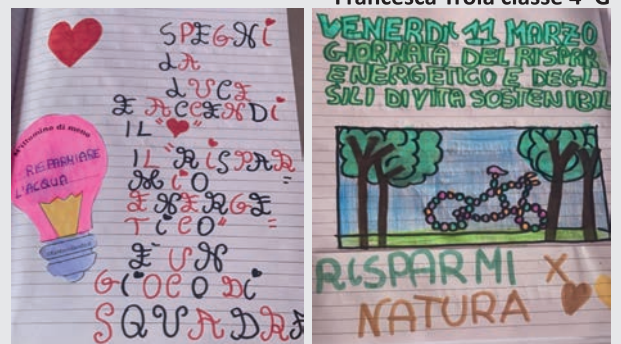 Francesca Troia classe 4^ G
SPEGNI
LA
LUCE
E ACCENDI
IL "❤"
IL "RISPAR
MIO
ENERGE
TICO"
E UN
GIOCO DI
SQUADRA
M'illumino di meno
RISPARMIARE
L'ACQUA
VENERDI 11 MARZO
GIORNATA DEL RISPAR
ENERGETICO E DEGLI
SILI DI VITA SOSTENIBIL
RISPARMI X
NATURA